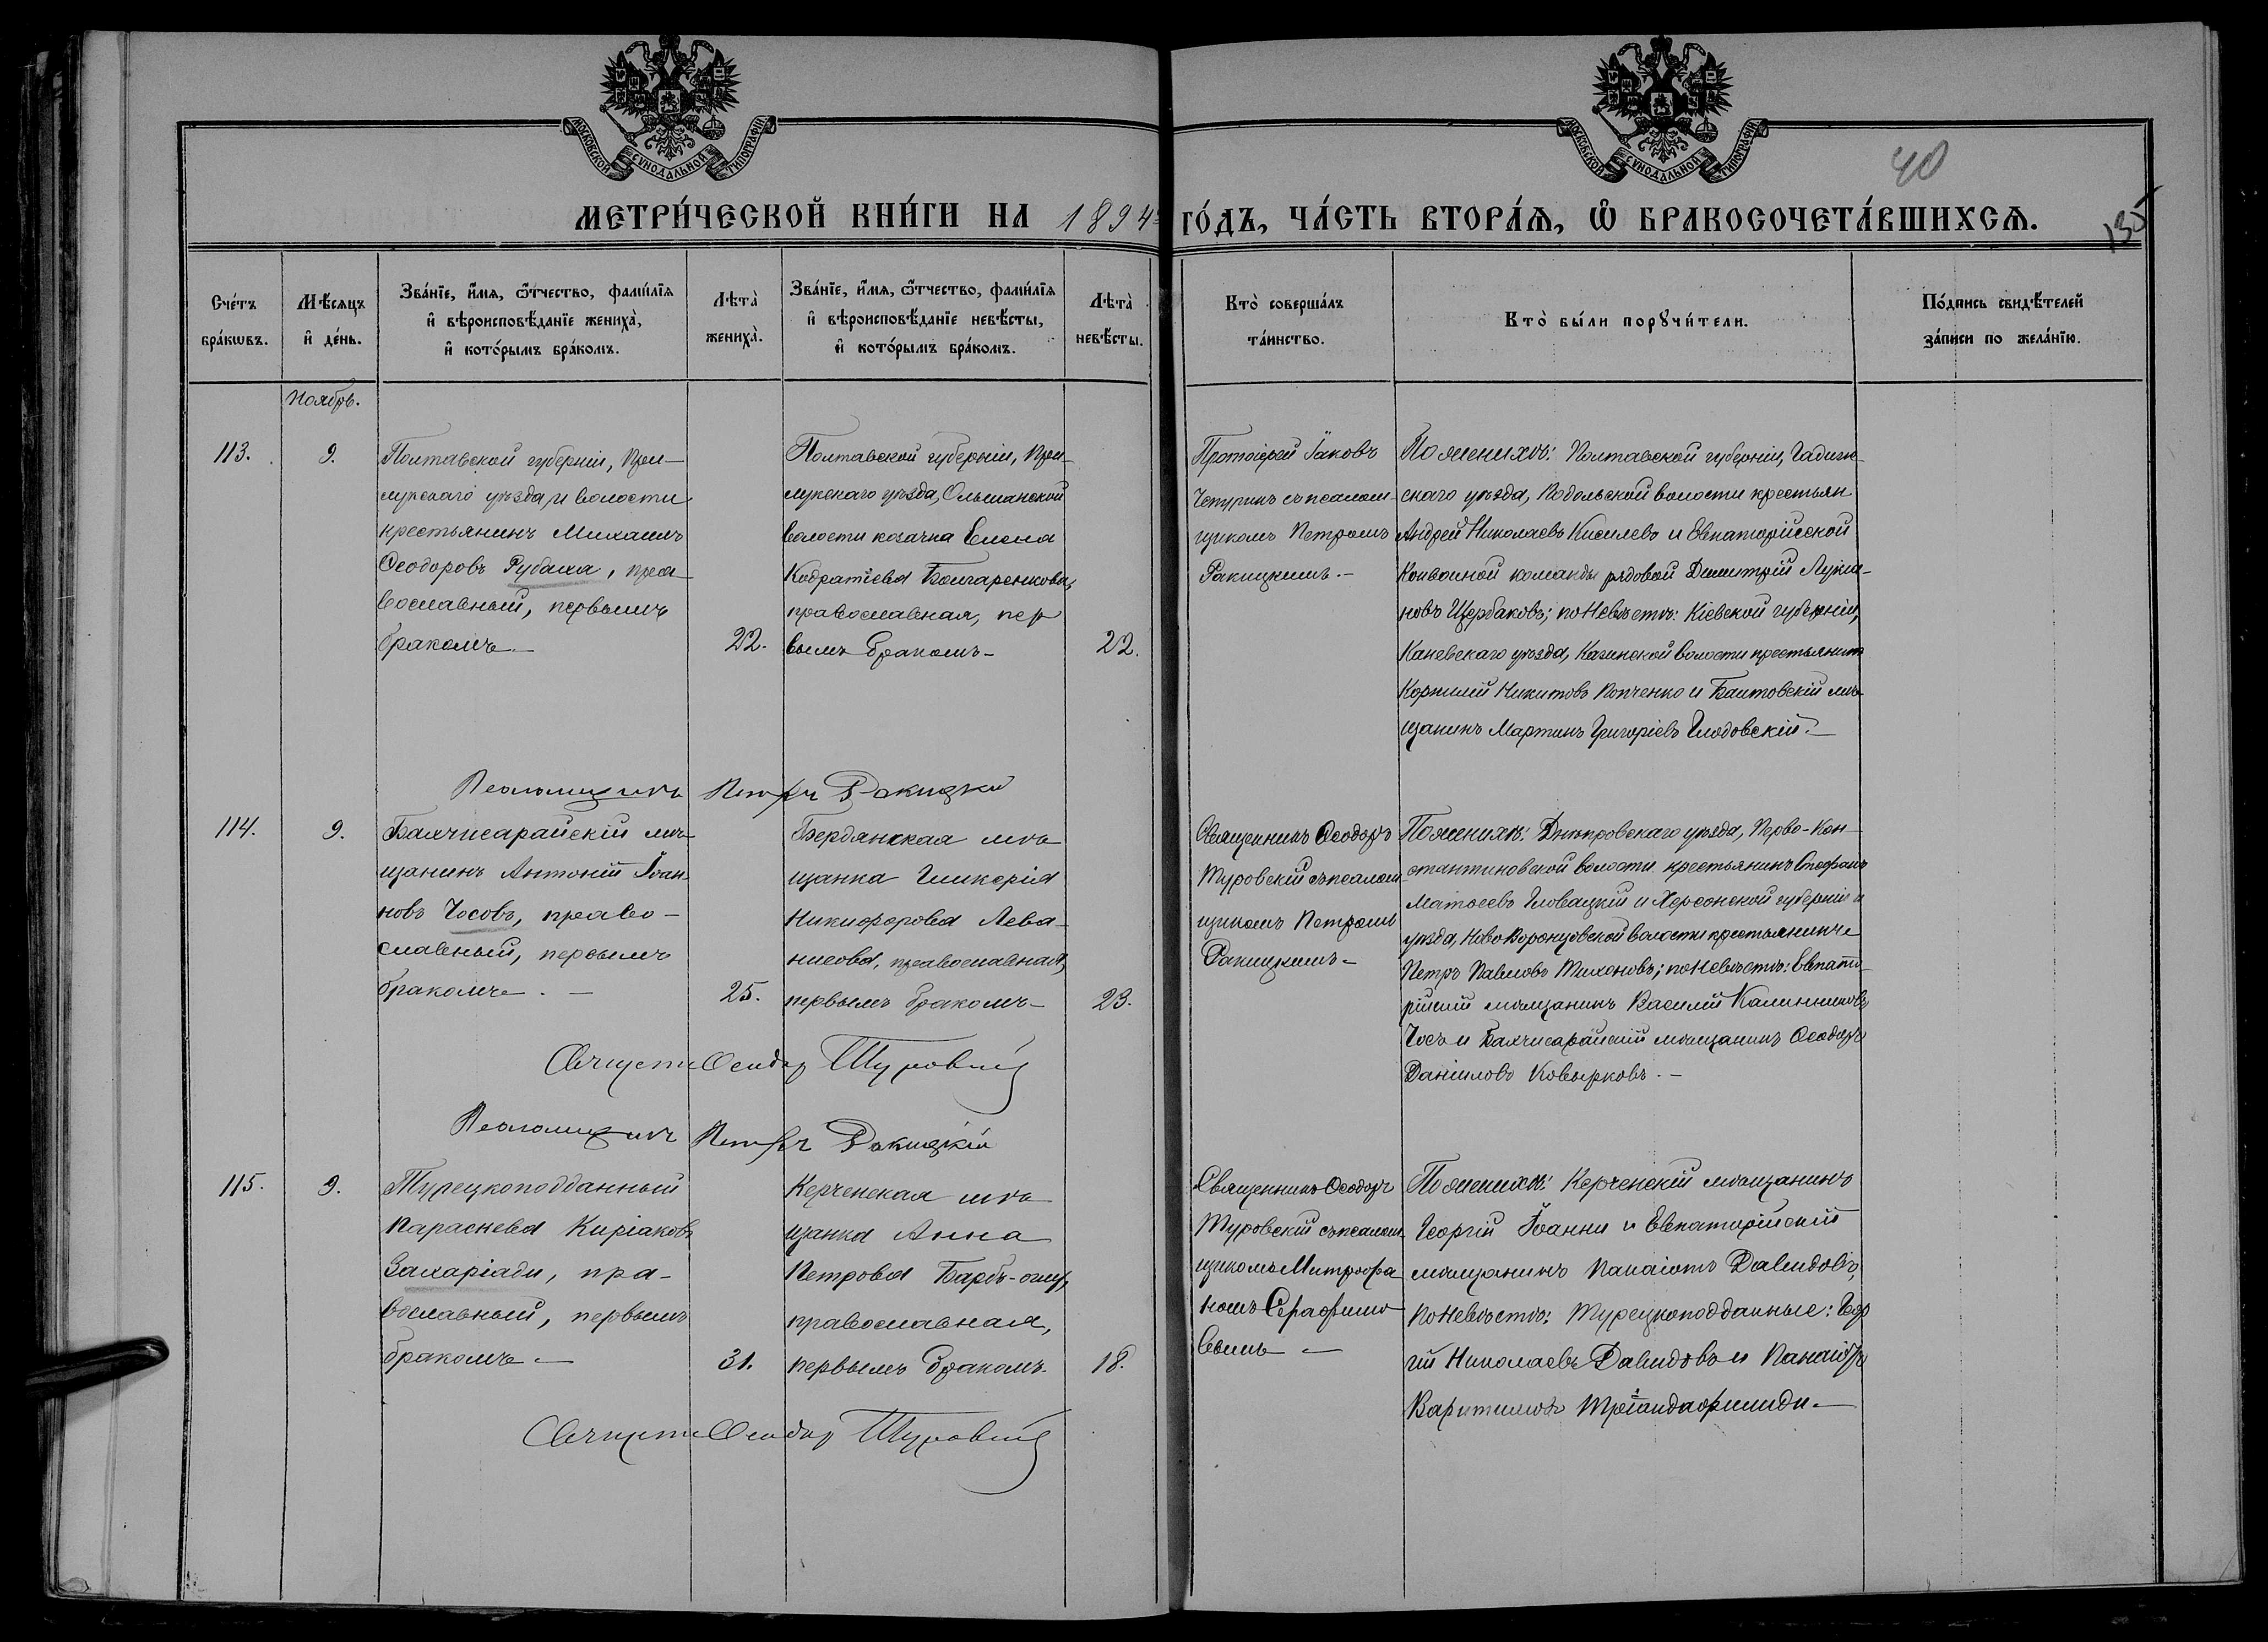 МОСКОВСКОЙ СѴНОДАЛЬНОЙ ТИПОГРАФІИ
МОСКОВСКОЙ СѴНОДАЛЬНОЙ ТИПОГРАФІИ
40
135
МЕТРИ́ЧЕСКОЙ КНИ́ГИ НА 1894 ГО́ДЪ, ЧА́СТЬ ВТОРА́Ѧ, Ѡ҆ БРАКОСОЧЕТА́ВШИХСѦ.
Сче́тъ бра́кѡвъ.
Мѣ́сяцъ и҆ де́нь.
Зва́нїе, и҆́мя, ѻ҆́тчество, фами́лїя
и҆ вѣроисповѣ́данїе жениха̀,
и҆ кото́рымъ бра́комъ.
Лѣта̀ жениха̀.
Зва́нїе, и҆́мя, ѻ҆́тчество, фами́лїя
и҆ вѣроисповѣ́данїе невѣ́сты,
и҆ кото́рымъ бра́комъ.
Лѣта̀ невѣ́сты.
Кто̀ соверша́лъ
та́инство.
Кто̀ бы́ли порꙋчи́тели.
По́дпись свидѣ́телей
за́писи по жела́нїю.
Ноябрь.
113.
9.
Полтавской губерніи, При-
лукскаго уѣзда, и волости
крестьянинъ Михаилъ
Ѳеодоровъ Рубаха, пра-
вославный, первымъ
бракомъ. —
22.
Полтавской губерніи, При-
лукскаго уѣзда, Ольшанской
волости козачка Елена
Кодратіева Бондаренкова,
православная, пер
вымъ бракомъ —
22.
Протоіерей Іаковъ
Чепуринъ съ псалом-
щикомъ Петромъ
Ракицкимъ. —
По женихѣ: Полтавской губерніи, Гадяч-
скаго уѣзда, Подольской волости крестьян
Андрей Николаевъ Киселевъ и Евпаторійской
Конвойной команды рядовой Димитрій Лукиа-
новъ Щербаковъ; по Невѣстѣ: Кіевской губерніи,
Каневскаго уѣзда, Казинской волости крестьянинъ
Корнилій Никитовъ Копченко и Балтовскій мѣ-
щанинъ Мартинъ Григоріевъ Глодовскій. —
Псаломщикъ Петръ Ракицкій
114.
9.
Бахчисарайскій мѣ-
щанинъ Антоній Іоан-
новъ Чосовъ, право-
славный, первымъ
бракомъ. —
25.
Бердянская мѣ
щанка Гликерія
Никифорова Лева-
нисова, православная,
первымъ бракомъ —
23.
Священникъ Ѳеодоръ
Туровскій съ псалом-
щикомъ Петромъ
Ракицкимъ —
По женихѣ: Днѣпровскаго уѣзда, Перво-Кон-
стантиновской волости крестьянинъ Стефанъ
Матѳеевъ Гловацкій и Херсонской губерніи и
уѣзда, Ново Воронцовской волости крестьянинъ
Петръ Павловъ Тихоновъ; по Невѣстѣ: Евпато-
рійскій мѣщанинъ Василій Калинниковъ
Чосъ и Бахчисарайскій мѣщанинъ Ѳеодоръ
Даніиловъ Ковырковъ. —
Священ Ѳеодор Туровскій
Псаломщикъ Петръ Ракицкій
115.
9.
Турецкоподданный
Параскева Киріаковъ
Захаріади, пра-
вославный, первымъ
бракомъ —
31.
Керченская мѣ
щанка Анна
Петрова Барбъ-оглу,
православная,
первымъ бракомъ.
18.
Священникъ Ѳеодоръ
Туровскій съ псалом
щикомъ Митрофа
номъ Серафимо
вымъ —
По женихѣ: Керченскій мѣщанинъ
Георгій Іоанни и Евпаторійскій
мѣщанинъ Панаіотъ Давидовъ,
по Невѣстѣ: Турецкоподданные: Геор
гій Николаевъ Давидовъ и Панаіотъ
Тріандафилиди —
Священ Ѳеодор Туровскій